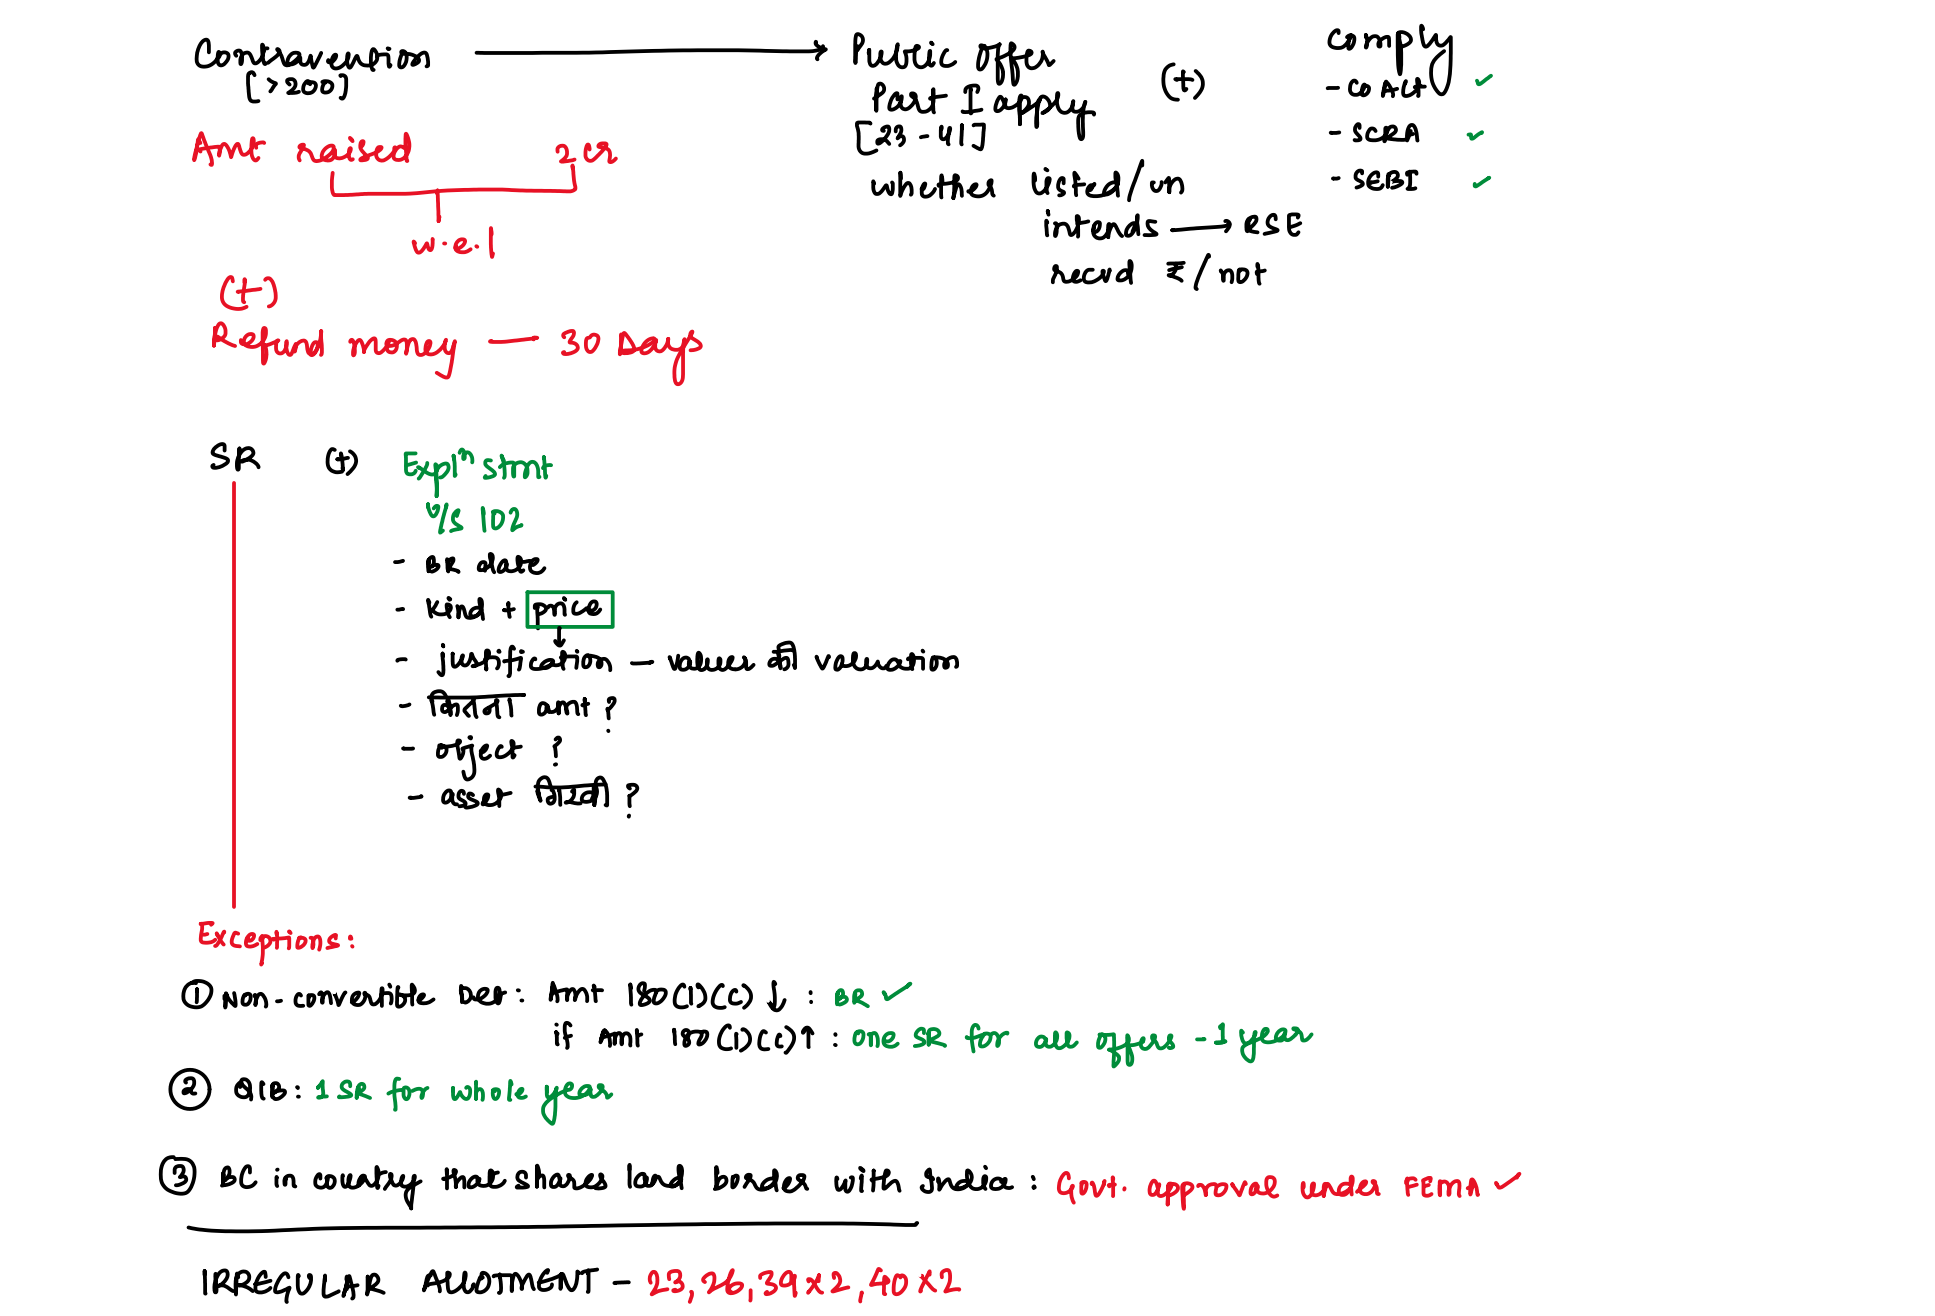 Contravention → Public offer (+) Comply
[>200] Part I apply - Co Act ✓
[23-41] - SCRA ✓
Amt raised 2 cr
whether listed/un - SEBI ✓
w.e.l intends → RSE
recvd ₹/not
(+)
Refund money — 30 Days
SR (+) Explⁿ stmt
u/s 102
- BR date
- Kind + price
- justification — valuer की valuation
- कितना amt ?
- object ?
- asset गिरवी ?
Exceptions:
① Non-convertible Deb: Amt 180(1)(c) ↓ : BR ✓
if Amt 180(1)(c) ↑ : one SR for all offers - 1 year
② QIB: 1 SR for whole year
③ BC in country that shares land border with India : Govt. approval under FEMA ✓
IRREGULAR ALLOTMENT - 23, 26, 39 x 2, 40 x 2